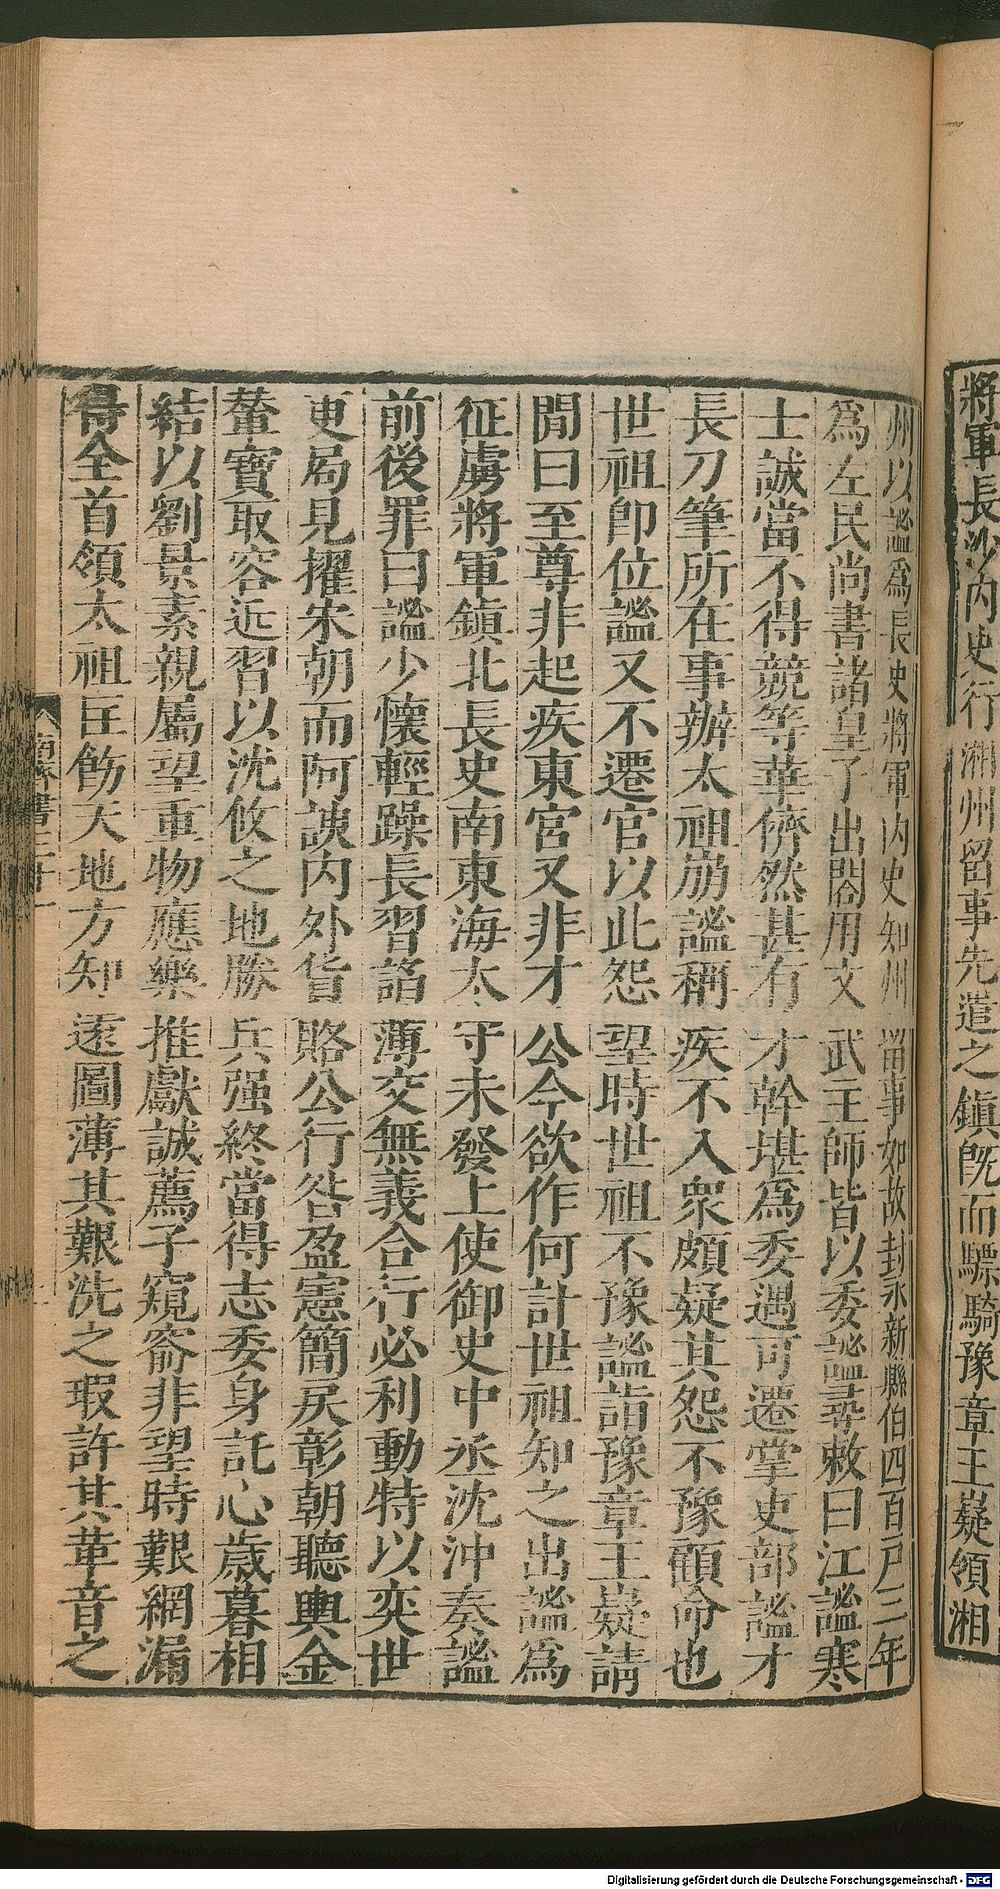 將軍長沙內史行湘州留事先遣之鎮旣而驃騎豫章王嶷領湘
州以謐爲長史將軍內史知州畱事如故封永新縣伯四百戸三年
爲左民尚書諸皇子出閤用文武主師皆以委謐尋敕曰江謐寒
士誠當不得競等華儕然甚有才幹堪爲委遇可遷掌吏部謐才
長刀筆所在事辦太祖崩謐稱疾不入衆頗疑其怨不豫顧命也
世祖卽位謐又不遷官以此怨望時世祖不豫謐詣豫章王嶷請
閒曰至尊非起疾東宮又非才公今欲作何計世祖知之出謐爲
征虜將軍鎭北長史南東海太守未發上使御史中丞沈沖奏謐
前後罪曰謐少懷輕躁長習諂薄交無義合行必利動特以奕世
更局見擢宋朝而阿諛內外貨賂公行咎盈憲簡戾彰朝聽輿金
輦寶取容近習以沈攸之地勝兵强終當得志委身託心歲暮相
結以劉景素親屬望重物應樂推獻誠薦子窺窬非望時艱網漏
得全首領太祖匡飭天地方知遠圖薄其艱洗之瑕許其革音之
南齊書三十一
Digitalisierung gefördert durch die Deutsche Forschungsgemeinschaft - DFG